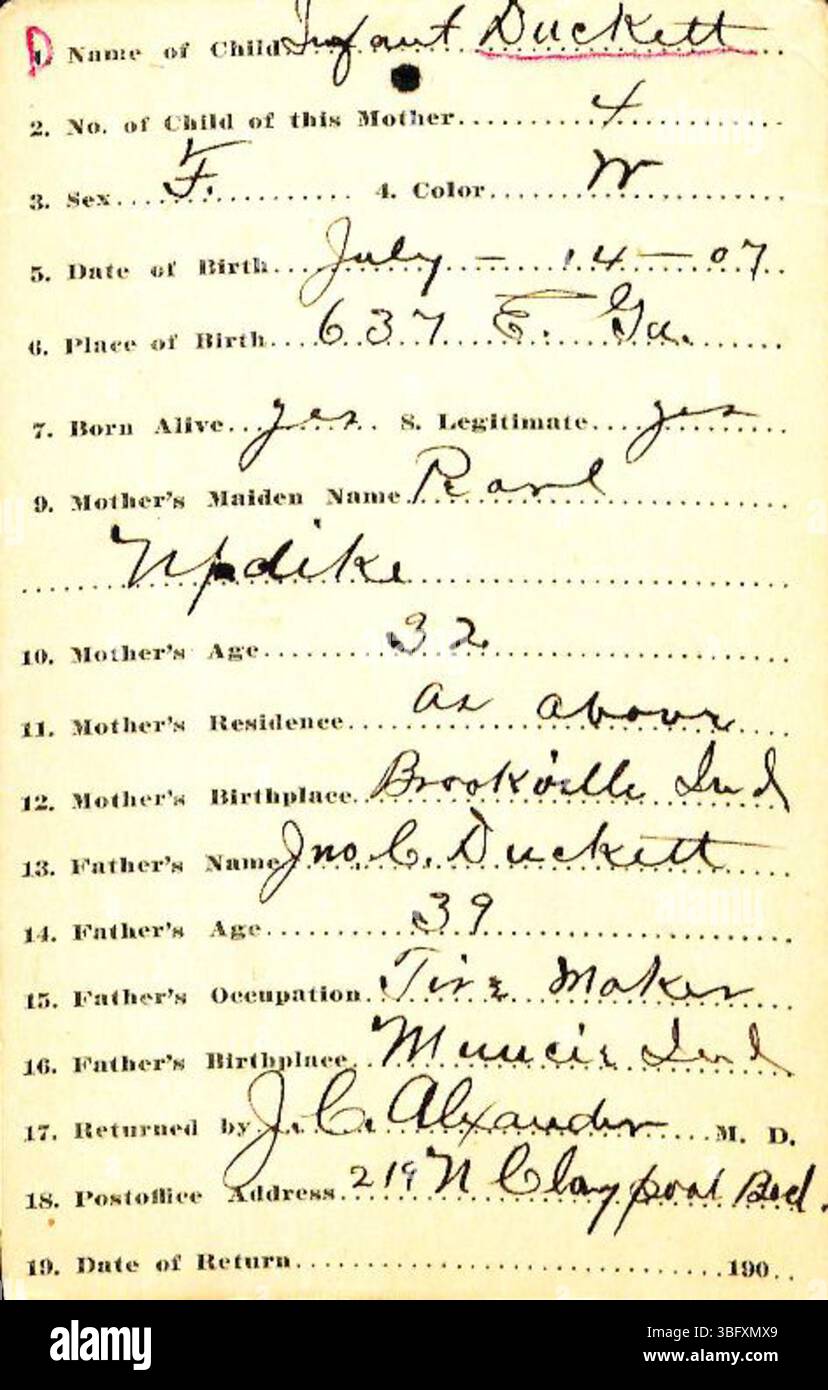 1. Name of Child Infant Duckett
2. No. of Child of this Mother 4
3. Sex F. 4. Color W
5. Date of Birth July - 14 - 07
6. Place of Birth 637 E. Ga.
7. Born Alive yes 8. Legitimate yes
9. Mother's Maiden Name
Updike
10. Mother's Age 32
11. Mother's Residence as above
12. Mother's Birthplace Brookville Ind
13. Father's Name Jno. C. Duckett
14. Father's Age 39
15. Father's Occupation Tire Maker
16. Father's Birthplace Muncie Ind
17. Returned by J. C. Alexander M. D.
18. Postoffice Address 219 N Claypool
19. Date of Return 190
alamy
Image ID: 3BFXMX9
www.alamy.com